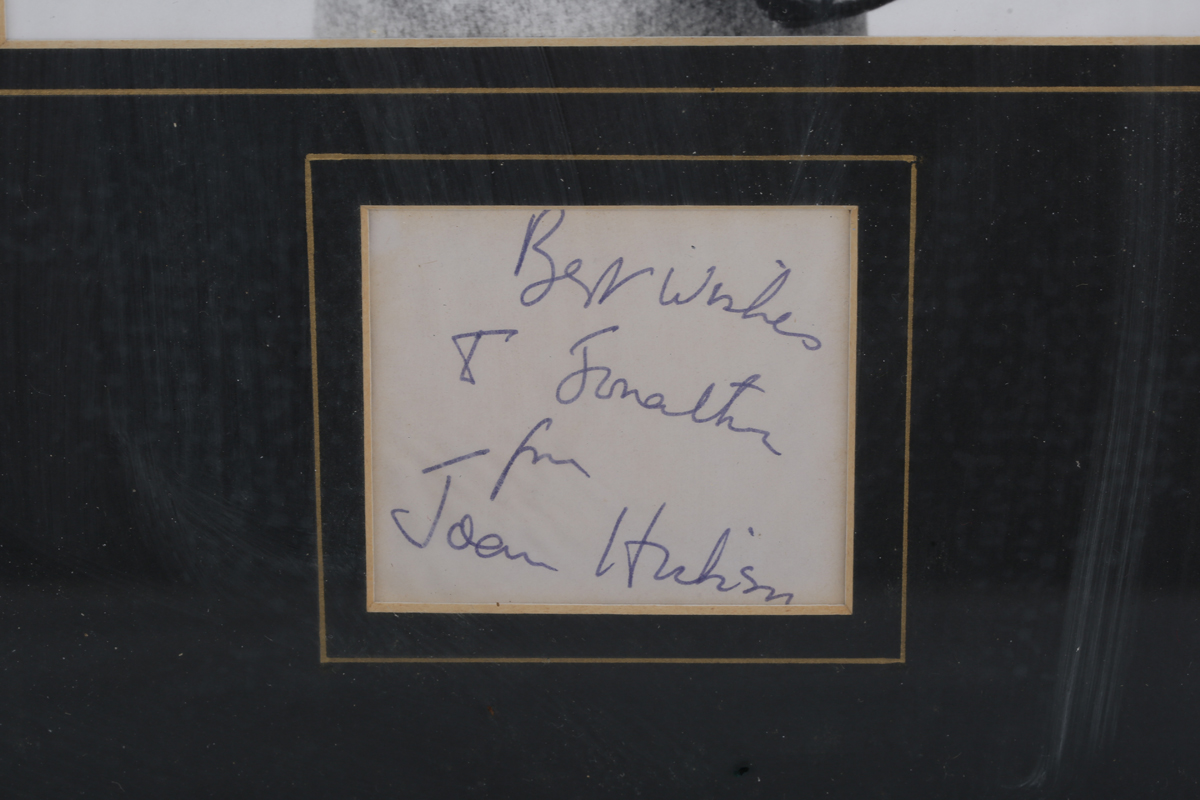 Best Wishes
To Jonathan
from
Joan Hickson